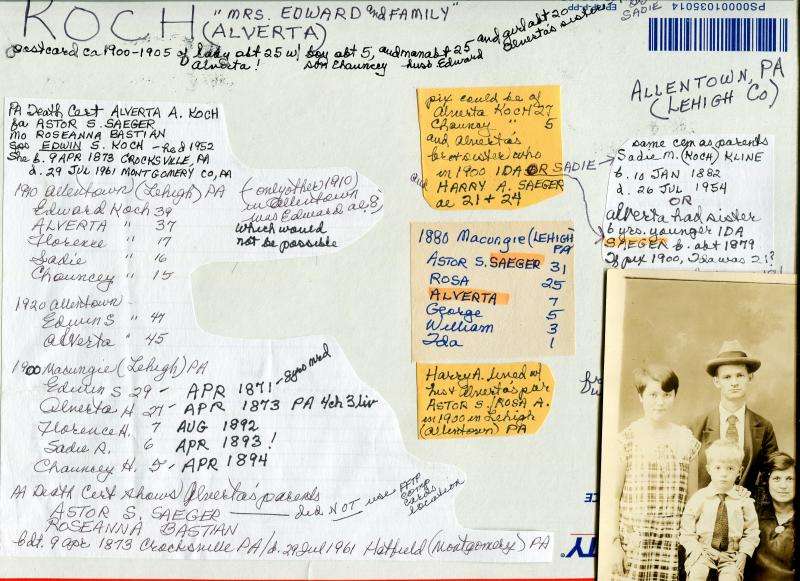 KOCH "MRS. EDWARD and FAMILY"
(ALVERTA)
SADIE
PS00001035014
postcard ca 1900-1905 of lady abt 25 w/ boy abt 5, and man abt 25 and girl abt 20
Alverta! son Chauncey husb Edward Alverta's sister
ALLENTOWN, PA
(LEHIGH Co)
PA Death Cert ALVERTA A. KOCH
fa ASTOR S. SAEGER
mo ROSEANNA BASTIAN
sps EDWIN S. KOCH - Red 1952
She b. 9 APR 1873 CROCKSVILLE, PA
d. 29 JUL 1961 MONTGOMERY CO, PA
1910 Allentown (Lehigh) PA
Edward Koch 39
ALVERTA " 37
Florence " 17
Sadie " 16
Chauncey " 15
(only other 1910)
in Allentown
was Edward ae 8,
which would
not be possible
1920 Allentown -
Edwin S " 47
Alverta " 45
1900 Macungie (Lehigh) PA
Edwin S 29 - APR 1871 - 8 yrs mrd
Alverta H. 27 - APR 1873 PA 4ch 3 liv
Florence H. 7 AUG 1892
Sadie R. 6 APR 1893!
Chauncey H. 5 - APR 1894
PA Death Cert shows Alverta's parents
ASTOR S. SAEGER
ROSEANNA BASTIAN
did NOT use FTP
comp
cards
location
bdt. 9 apr 1873 Crocksville PA/d. 29 Jul 1961 Hatfield (Montgomery) PA
pix could be of
Alverta KOCH 27
Chauncy " 5
and Alverta's
bro + sister who
in 1900 IDA OR SADIE
+ HARRY A. SAEGER
ae 21 + 24
1880 Macungie (LEHIGH
PA
ASTOR S. SAEGER 31
ROSA 25
ALVERTA 7
George 5
William 3
Ida 1
Harry A. lived w/
his + Alverta's par
ASTOR S./ROSA A.
in 1900 in Lehigh
(Allentown) PA
same cem as parents
Sadie M. (KOCH) KLINE
b. 10 JAN 1882
d. 26 JUL 1954
OR
Alverta had sister
6 yrs. younger IDA
SAEGER b. abt 1879
If pix 1900, Ida was 21?